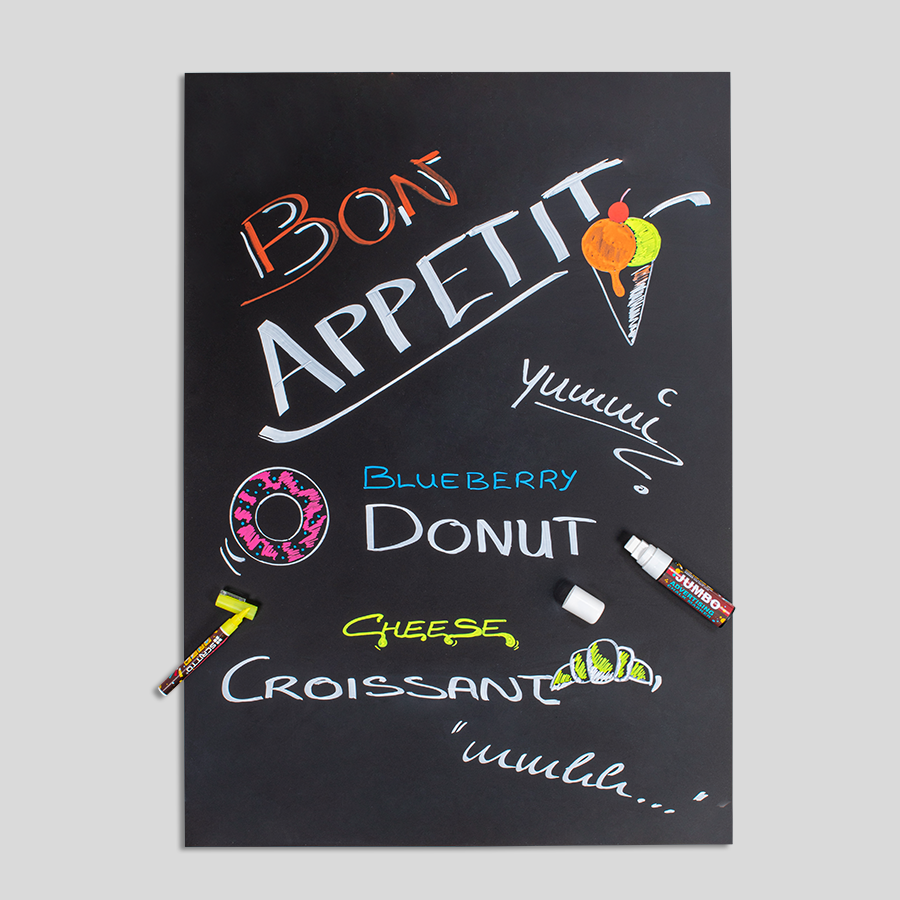 BON
APPETIT
yummi
BLUEBERRY
DONUT
JUMBO
ADVERTISING
CHEESE
CROISSANT
"mmhh..."